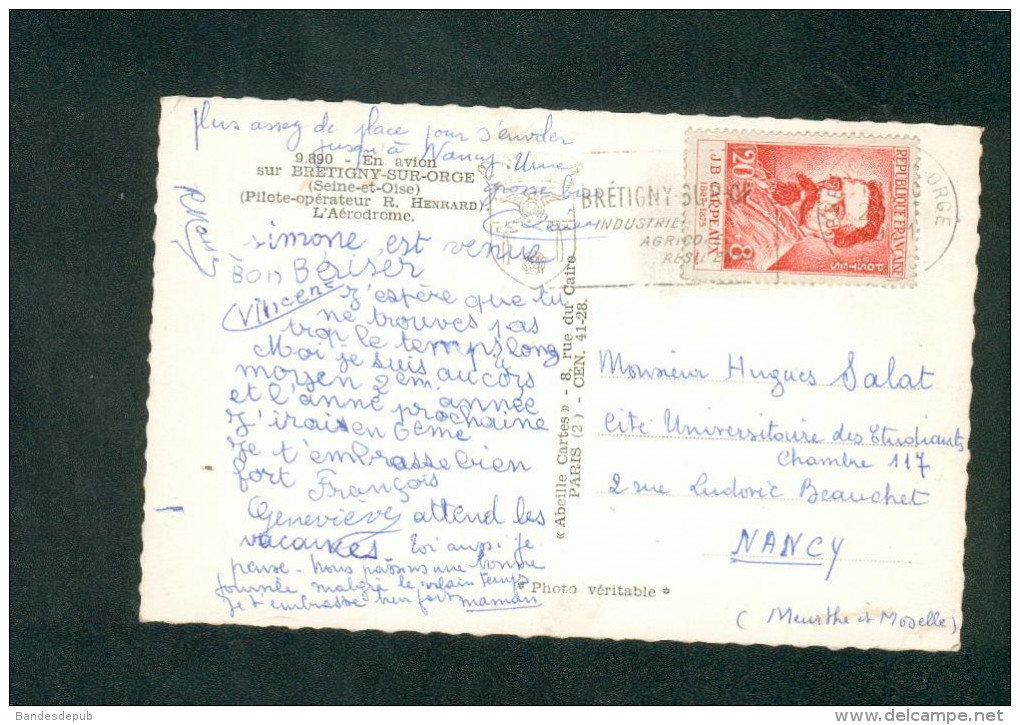 plus assez de place pour s'envoler
jusqu'à Nancy. Une
grosse
9.890 - En avion
sur BRÉTIGNY-SUR-ORGE
(Seine-et-Oise)
(Pilote-opérateur R. HENRARD)
L'Aérodrome.
simone est venue
BON BÉRISER
(Vincent
J'espère que tu
ne trouves pas
trop le temps long
Moi je suis au cors
moyen 2em année
et l'anné prochaine
J'irais en 6eme
Je t'embrasse bien
fort François
Geneviève attend les
vacances. Toi aussi je
pense - Nous passons une bonne
journée malgré le vilain temps
Je t'embrasse bien fort maman
« Abeille Cartes » - 8, rue du Caire
PARIS (2e) - CEN. 41-28.
* Photo véritable *
BRÉTIGNY-SUR-OR
INDUSTRIE
AGRICO
RÉSIDE
ORGE
RÉPUBLIQUE FRANÇAISE
POSTES
20F
8F
J.B CARPEAUX
1827-1875
Monsieur Hugues Salat
Cité Universitaire des Etudiants
Chambre 117
2 rue Ludovic Beauchet
NANCY
(Meurthe et Moselle)
Bandesdepub
www.delcampe.net